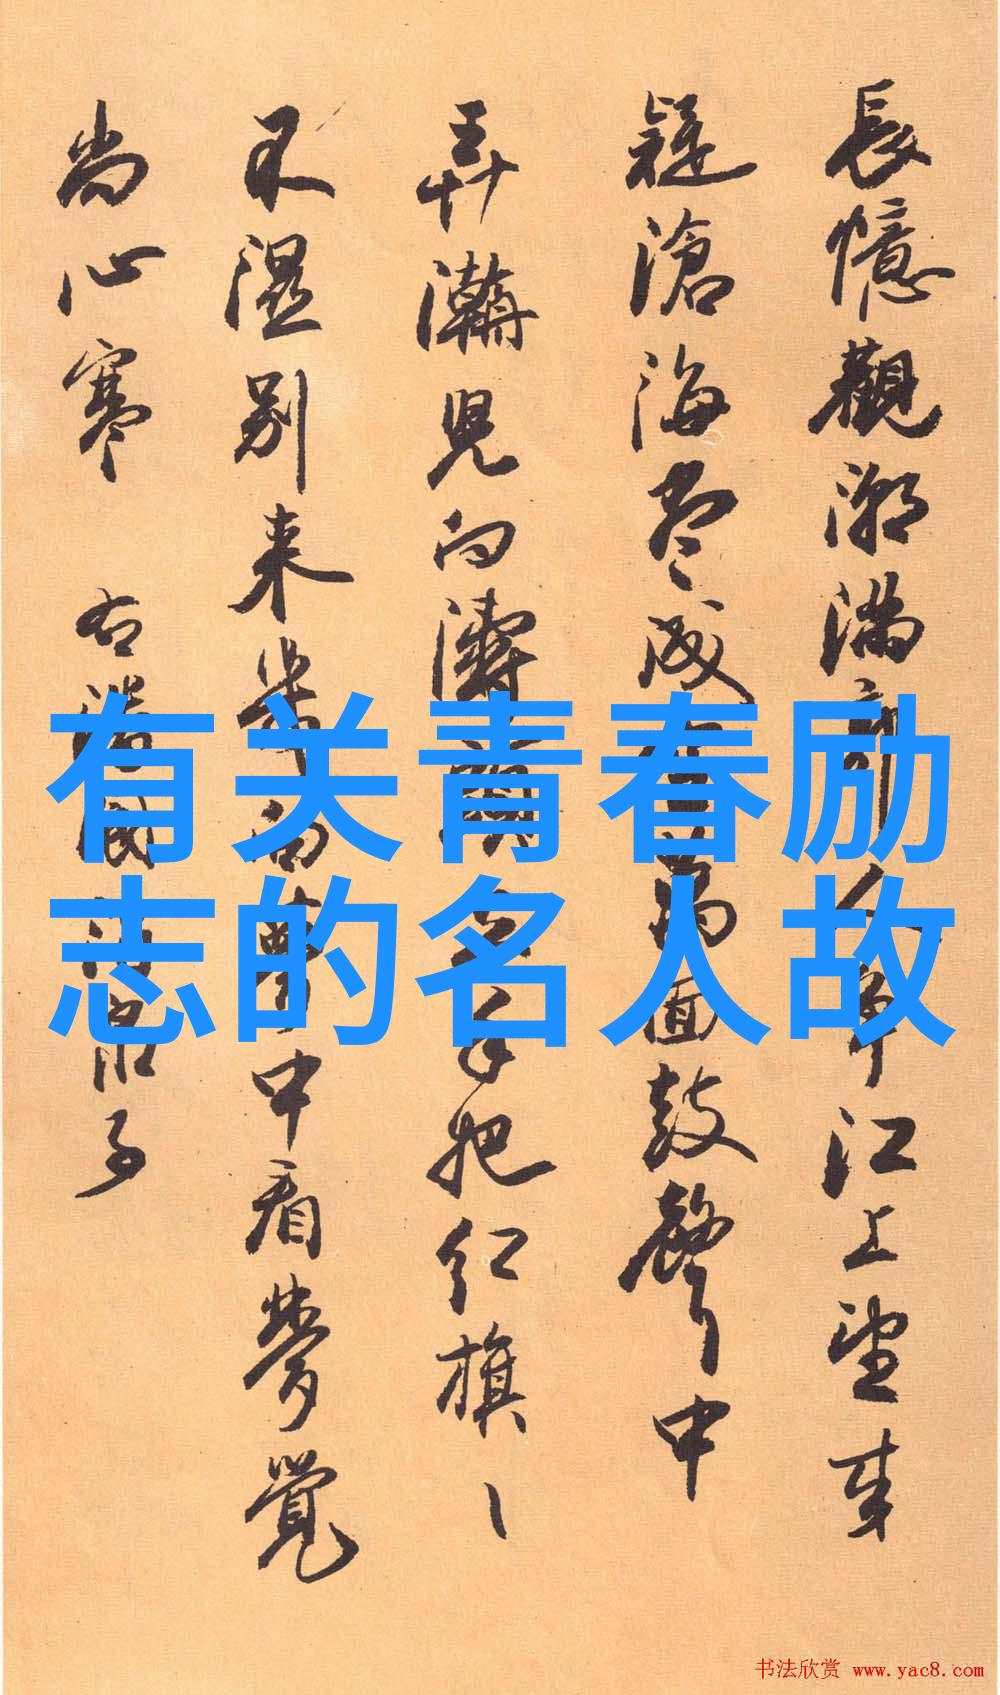 長憶觀潮滿郭人爭江上望来
疑滄海尽成空萬面鼓聲中
弄潮児向濤頭立手把红旗ヽ
不湿别来幾向夢中看夢覺
尚心寒 右潘阆酒泉子
有关青春励
志的名人故
书法欣赏 www.yac8.com